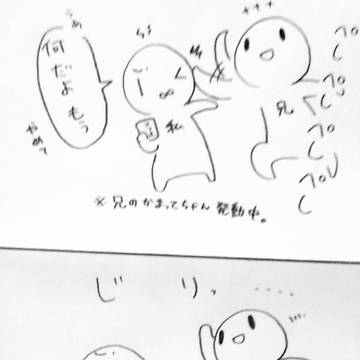 うぁ
何だよもう
やめて
私
兄
ペシ
ペシ
ペシ
ペシ
※兄のかまってちゃん発動中。
じりっ....